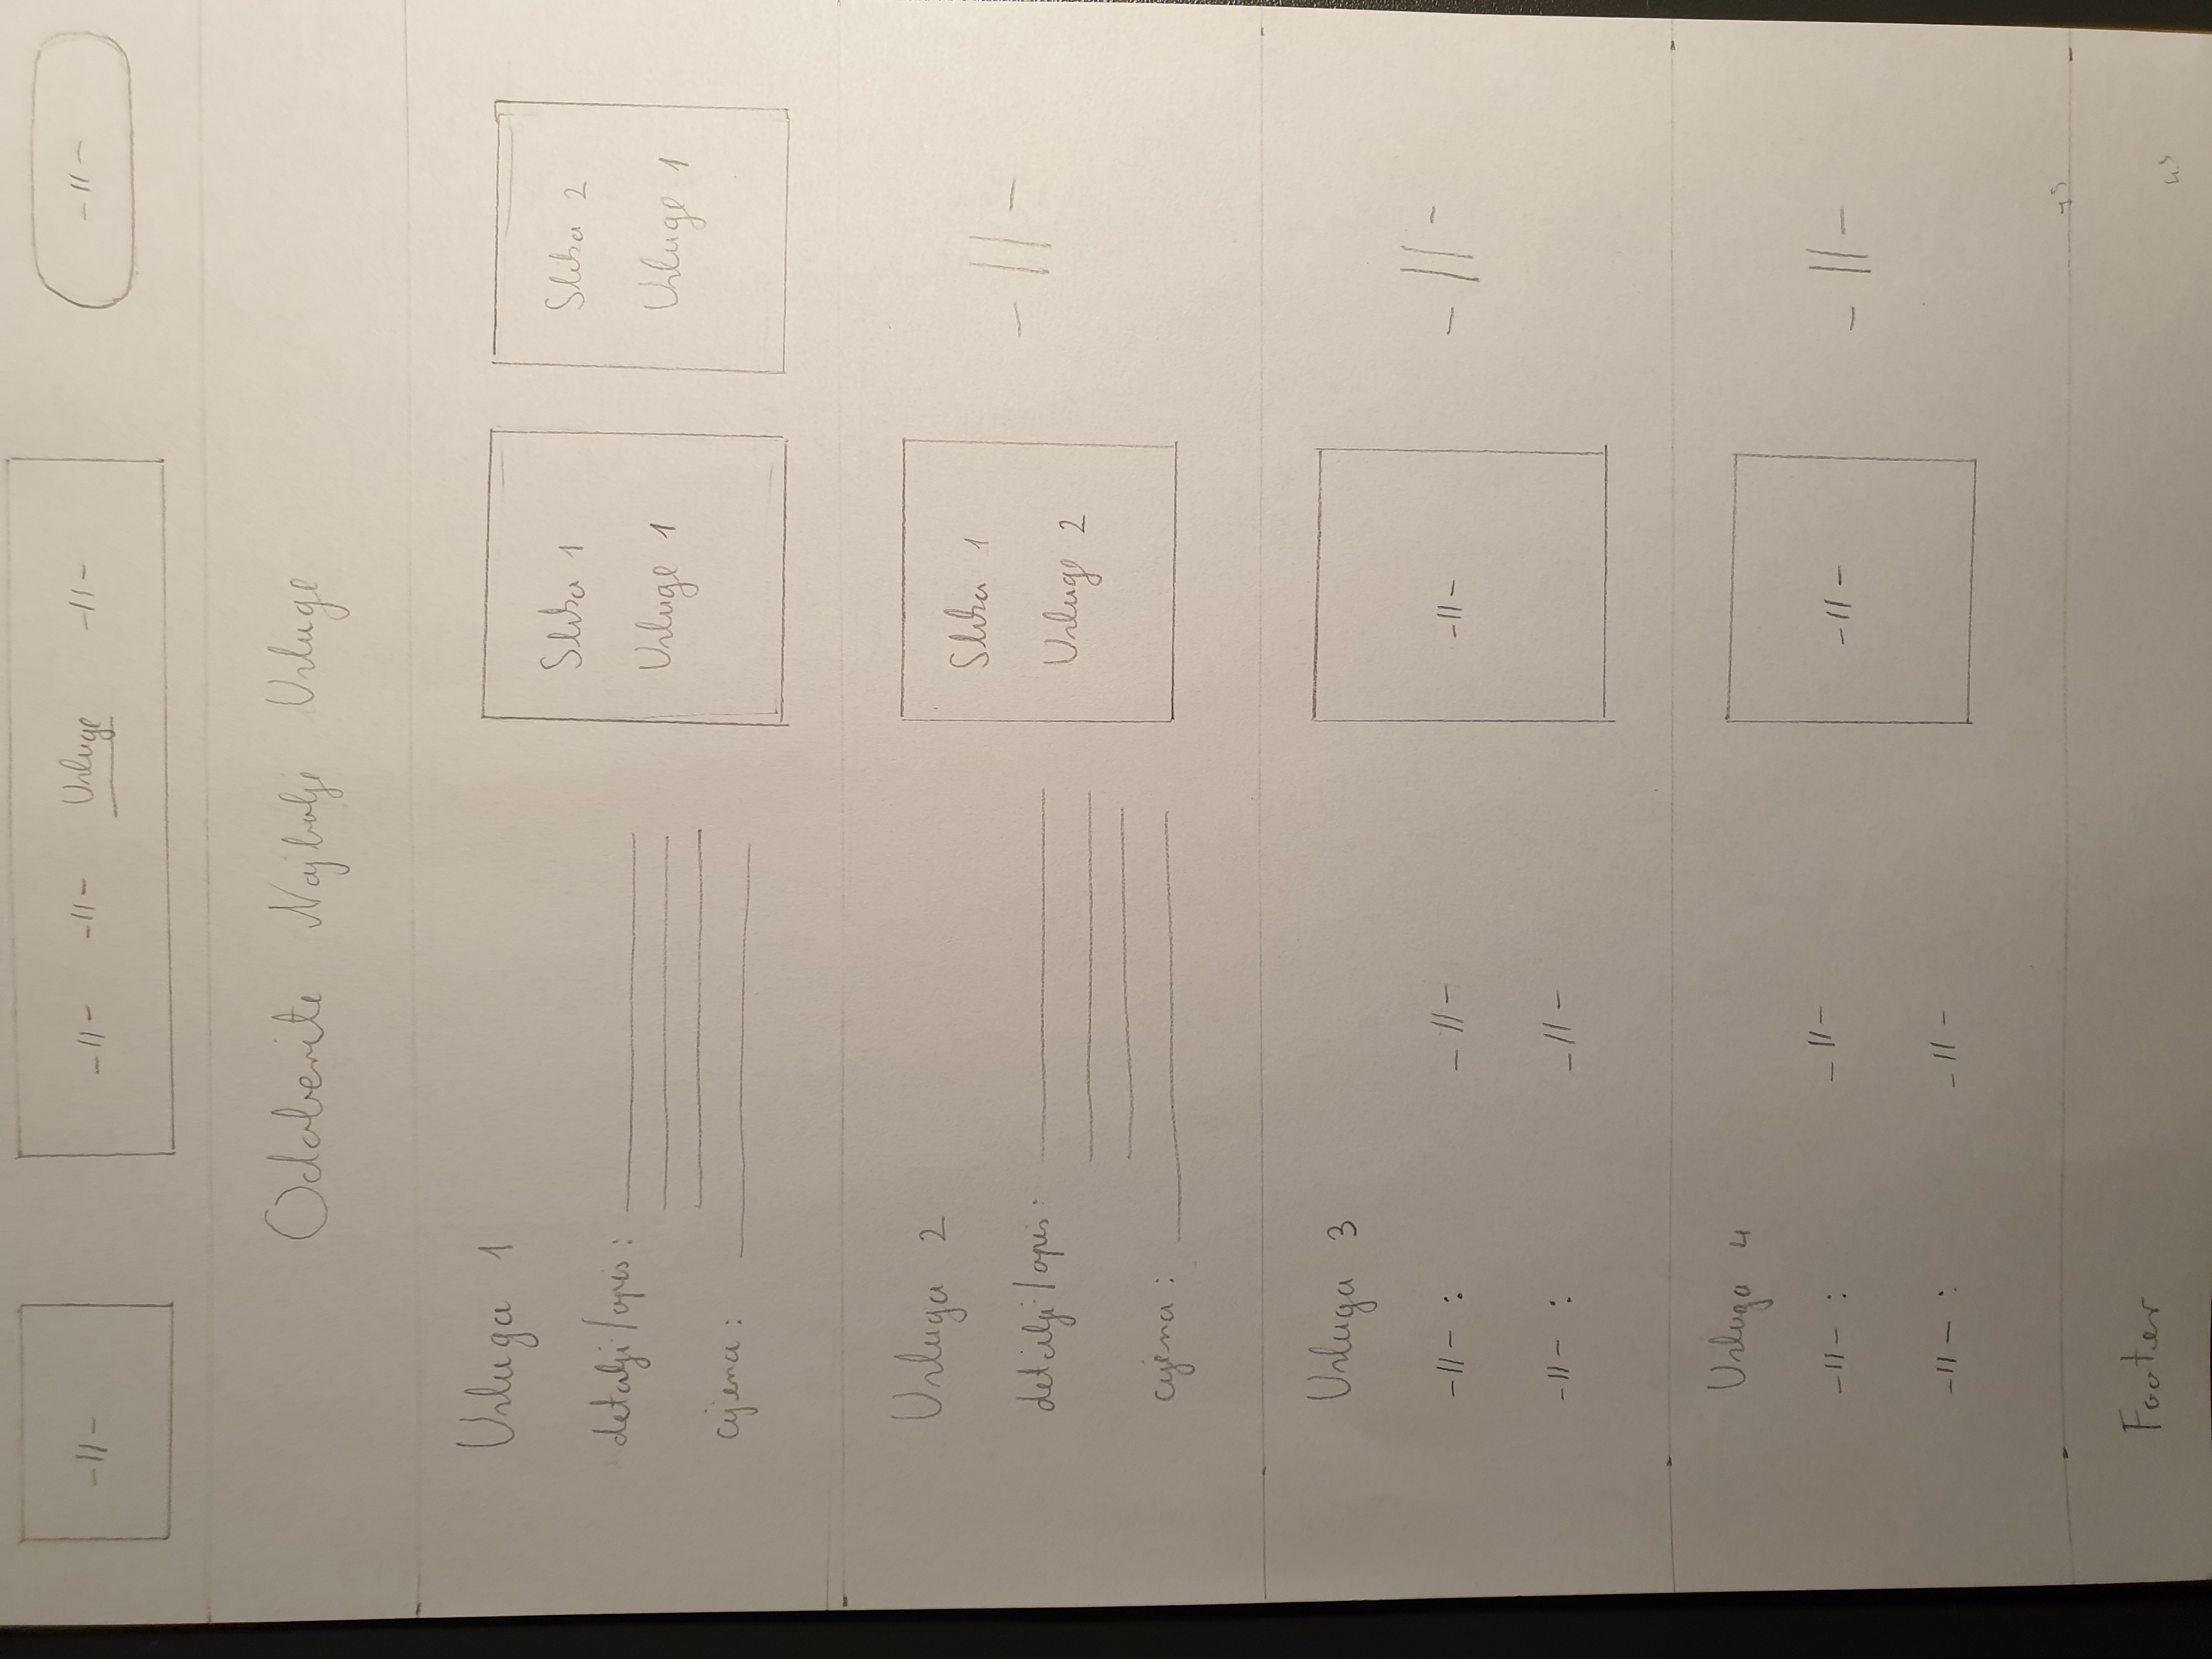 -//-
-//- -//- Usluge -//-
-//-
Odaberite Najbolje Usluge
Usluga 1
detalji/opis:
cijena:
Slika 1
Usluge 1
Slika 2
Usluge 1
Usluga 2
detalji/opis:
cijena:
Slika 1
Usluge 2
-//-
Usluga 3
-//- : -//-
-//- : -//-
-//-
-//-
Usluga 4
-//- : -//-
-//- : -//-
-//-
-//-
Footer